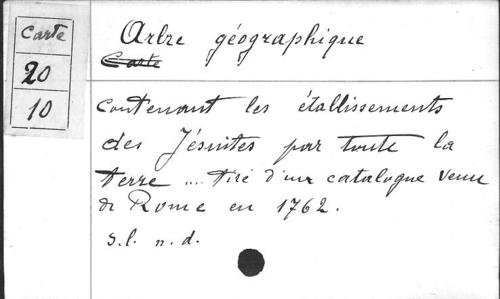 Carte
20
10
Arbre géographique
Carte
contenant les établissements
des Jésuites par toute la
terre ... tiré d'un catalogue venu
de Rome en 1762.
s.l. n.d.